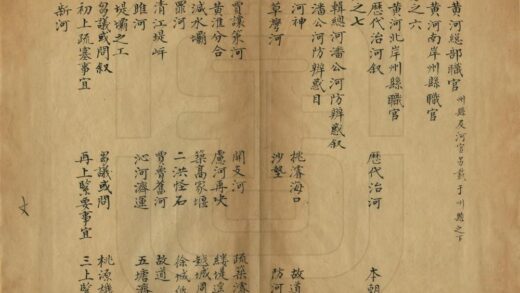 黃河總部職官
州縣及河官另載于州縣之下
黃河南岸州縣職官
之六
黃河北岸州縣職官
歷代治河叙 歷代治河 本朝
之七
輯總河潘公河防辨惑叙
潘公河防辨惑目
河神 挑濬海口 故道
草灣河 沙墊 防河
賈讓策河 開支河 疏築濬
黃淮分合 慮河再決 縷堤遥
減水壩 築高家堰 越城周
河 二洪怪石 徐城
清江堤岸 賈魯舊河 故道
睢河 沁河濟運 五塘濟
堤壩之工
另議或問叙 另議或問 桃源
初上疏塞事宜 再上緊要事宜 三上緊
新河